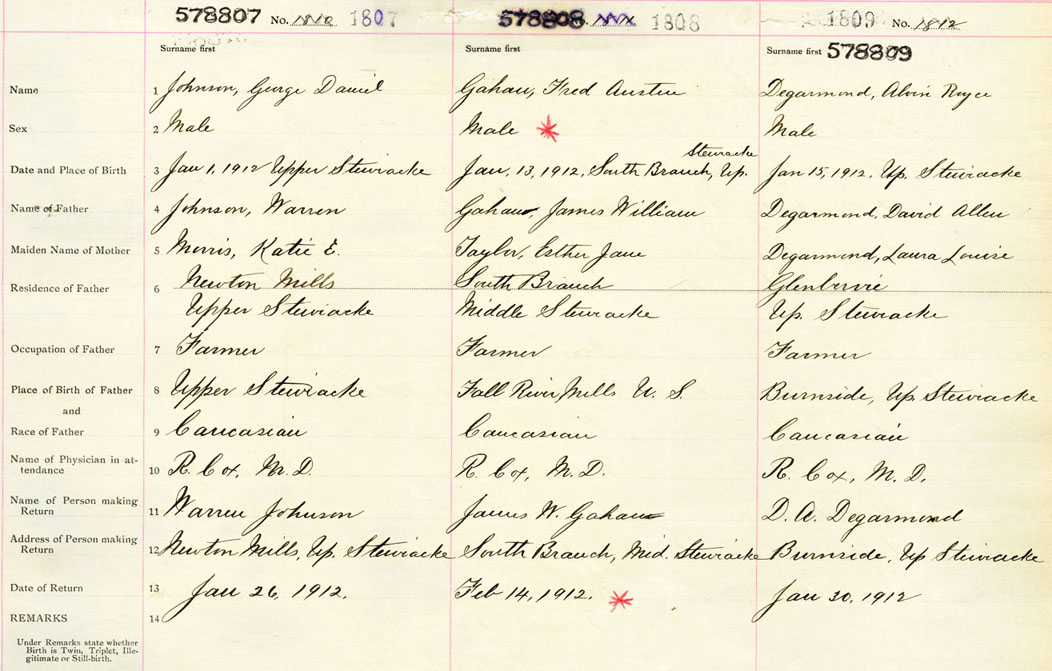 578807 No. 1810 1807 578808 No. 1808 1809 No. 1812
Surname first Surname first Surname first 578809
Name 1 Johnson, George Daniel Gahan, Fred Austen Degarmond, Alvin Royce
Sex 2 Male Male Male
Stewiacke
Date and Place of Birth 3 Jan 1, 1912 Upper Stewiacke Jan. 13, 1912, South Branch, Up. Jan 15, 1912. Up. Stewiacke
Name of Father 4 Johnson, Warren Gahan, James William Degarmond, David Allen
Maiden Name of Mother 5 Morris, Katie E. Taylor, Esther Jane Degarmond, Laura Louise
Residence of Father 6 Newton Mills South Branch Glenbervie
Upper Stewiacke Middle Stewiacke Up. Stewiacke
Occupation of Father 7 Farmer Farmer Farmer
Place of Birth of Father 8 Upper Stewiacke Fall River Mills U. S. Burnside, Up Stewiacke
and
Race of Father 9 Caucasian Caucasian Caucasian
Name of Physician in at-
tendance 10 R. Cox, M.D. R. Cox, M.D. R. Cox, M.D.
Name of Person making
Return 11 Warren Johnson James W. Gahan D. A. Degarmond
Address of Person making
Return 12 Newton Mills, Up. Stewiacke South Branch, Mid. Stewiacke Burnside, Up Stewiacke
Date of Return 13 Jan 26, 1912. Feb 14, 1912. Jan 30, 1912
REMARKS 14
Under Remarks state whether
Birth is Twin, Triplet, Ille-
gitimate or Still-birth.